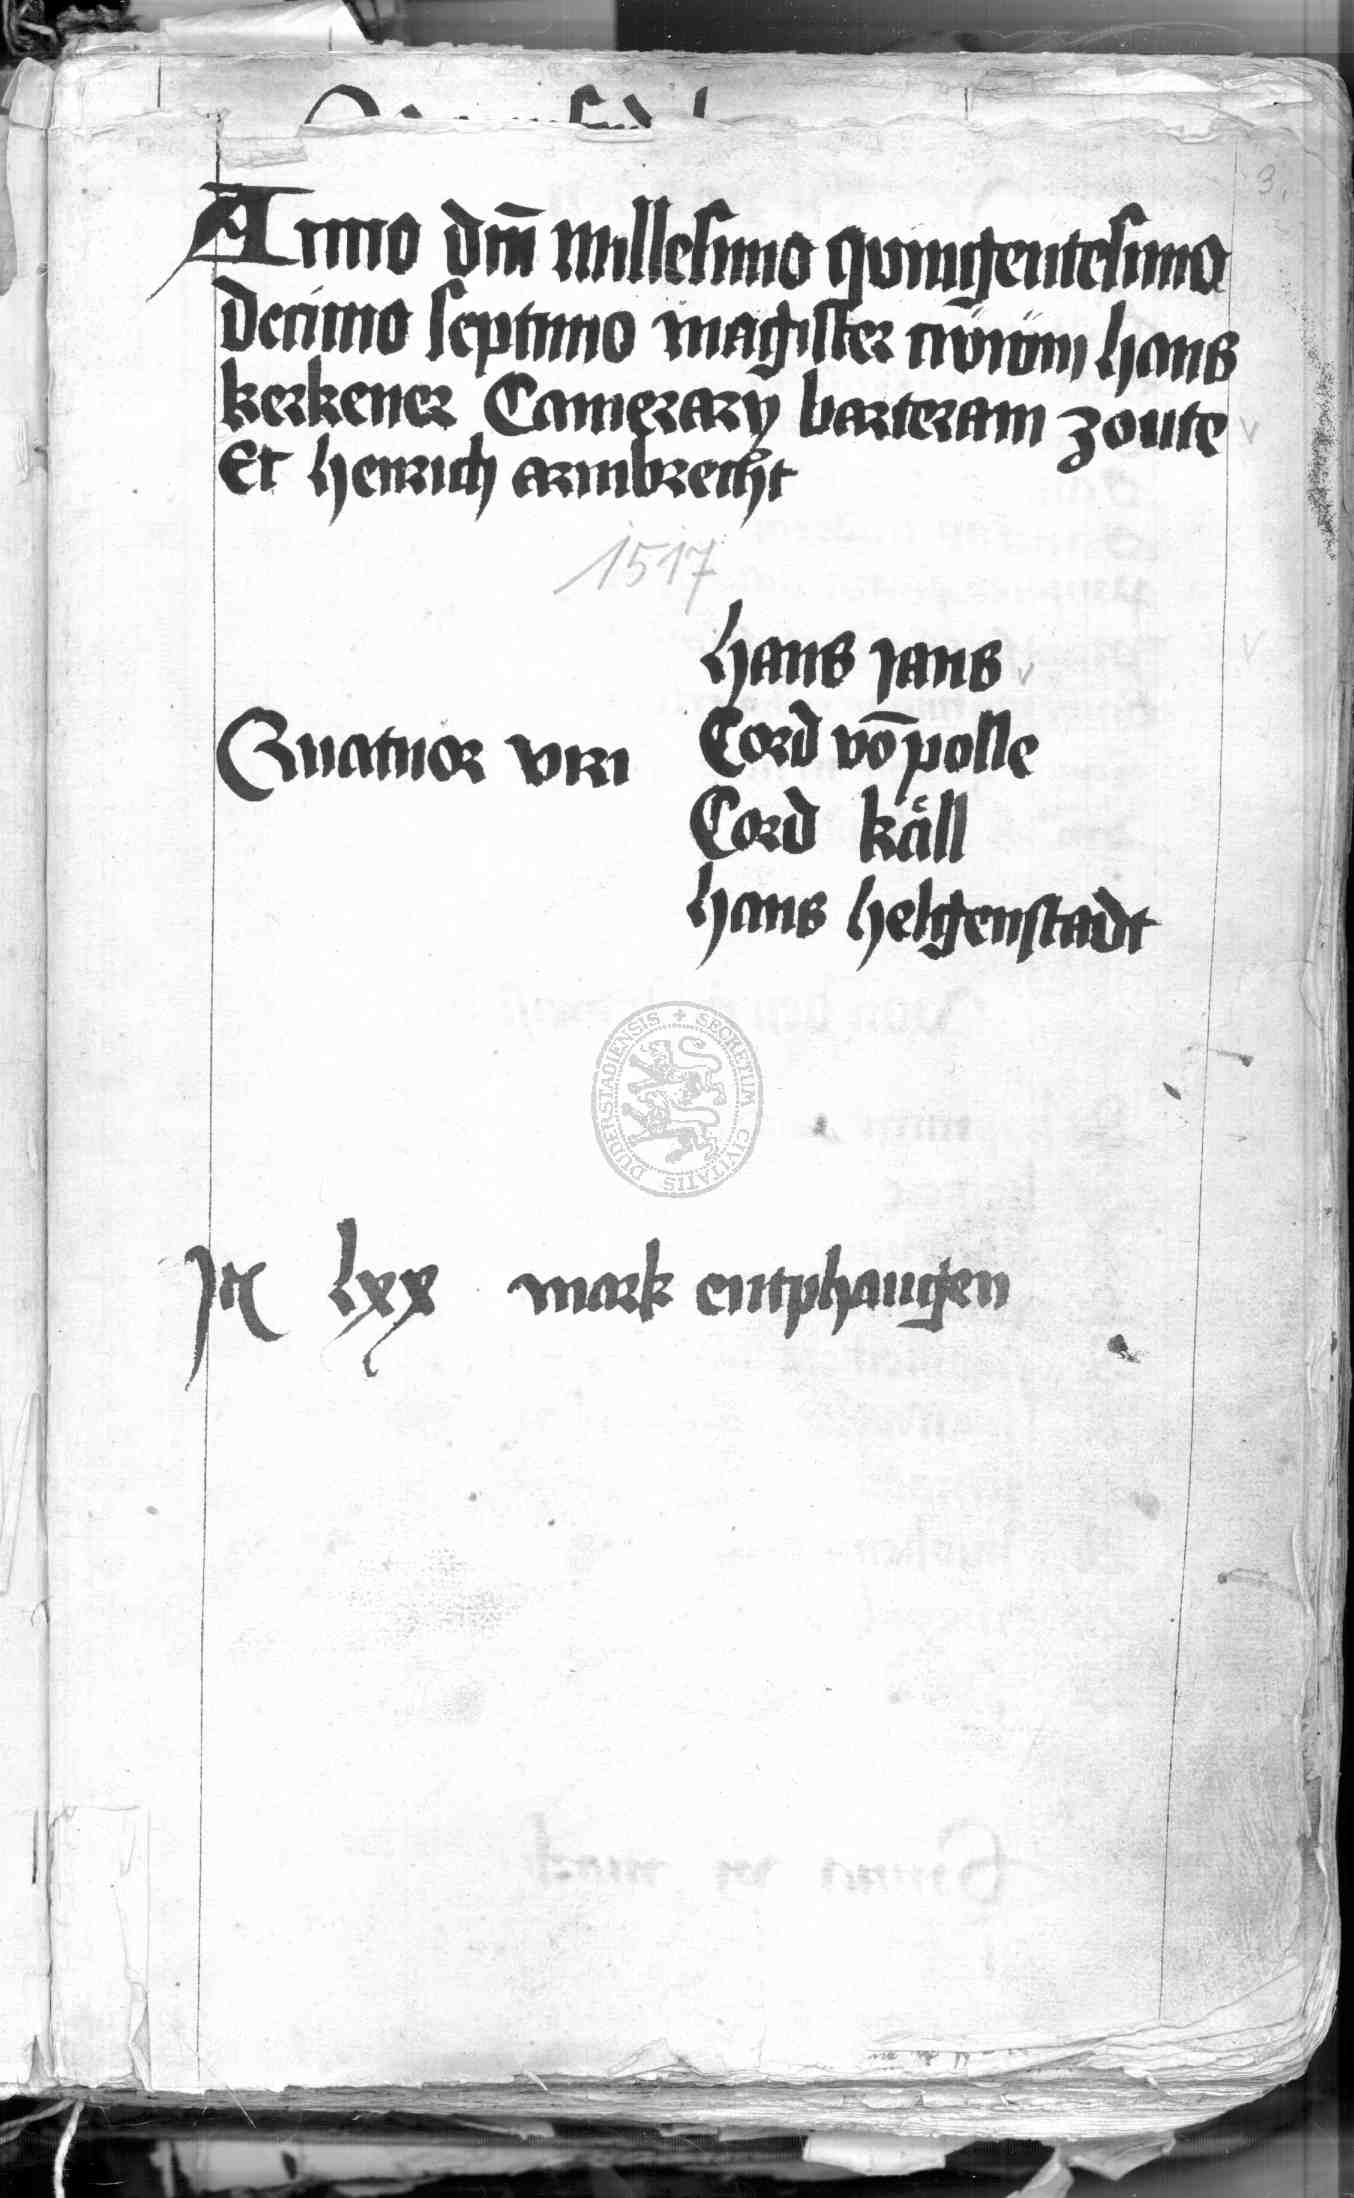 3.
Anno dm̄ Millesimo quingentesimo
decimo septimo magister civium hans
kerkener Camerarÿ barteram zoute
Et henrich armbrecht
1517
hans jans
Quatuor viri Cord vō polle
Cord kåll
hans helgenstadt
SECRETUM CIVITATIS DUDERSTADIENSIS
lxx mark entphangen